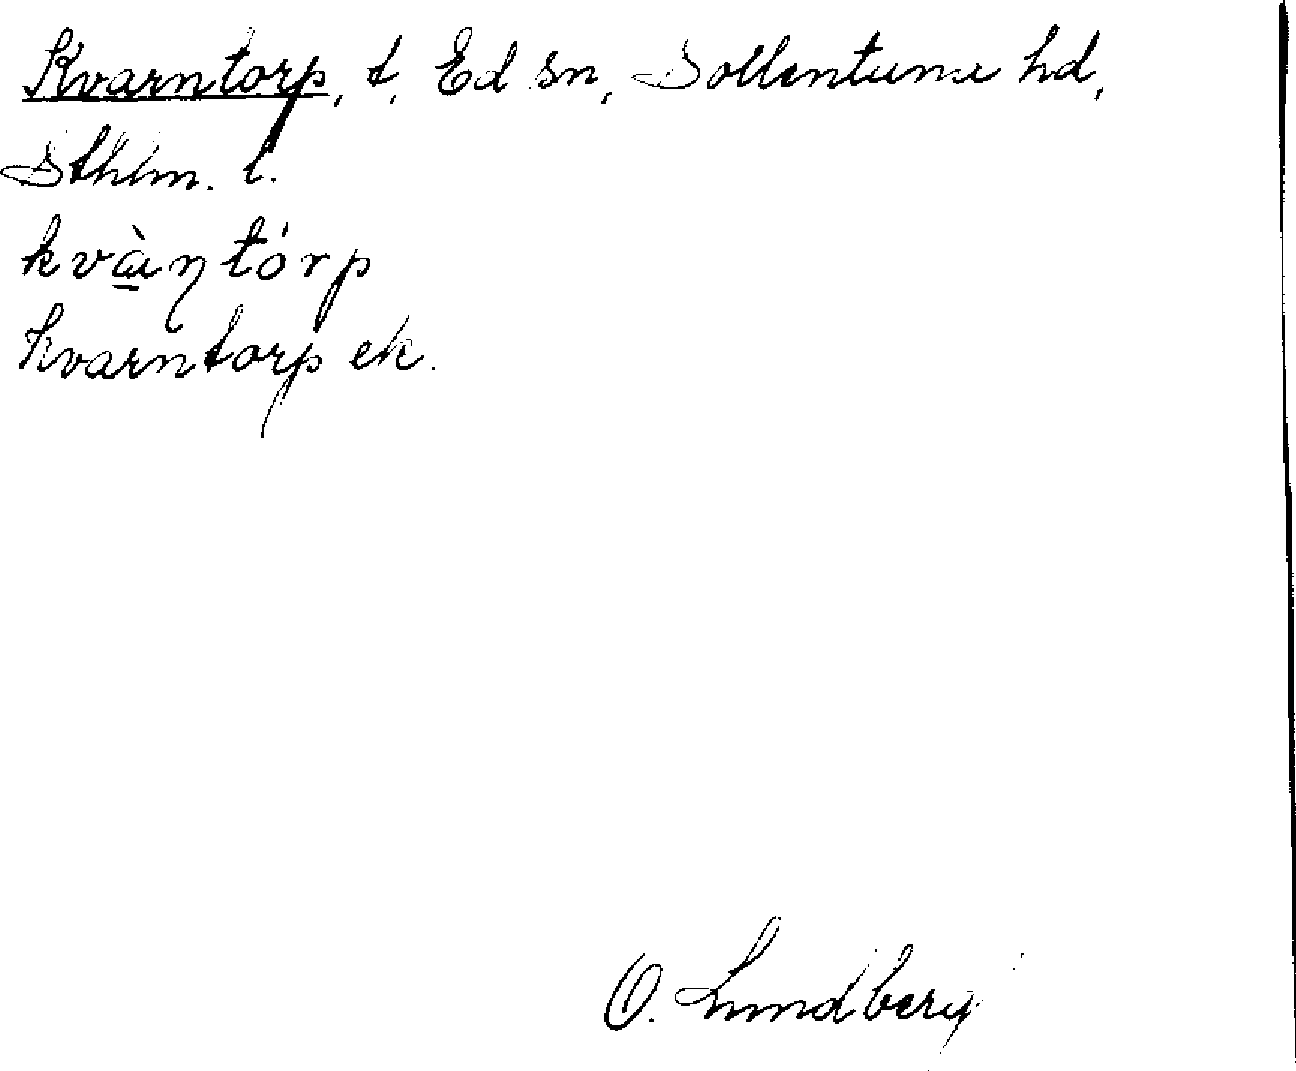 Kvarntorp, t, Ed sn, Sollentuna hd,
Sthlm. l.
kvàɳtórp
Kvarntorp ek.
O. Lundberg